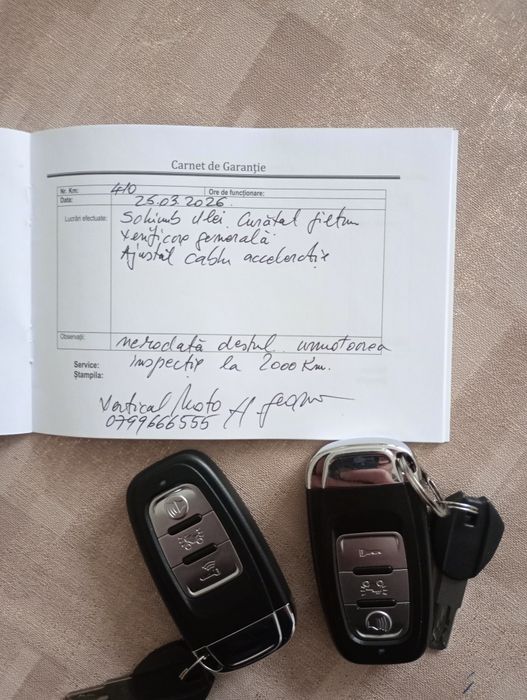 Carnet de Garanție
Nr. Km: 410 Ore de funcționare:
Data: 25.03.2026.
Lucrări efectuate: Schimb ulei Curățat filtru
Verificare generală
Ajustat cablu accelerație
Observații: nerodată destul urmatoarea
Service: inspecție la 2000 Km.
Ștampila:
Vertical Moto
0799666555